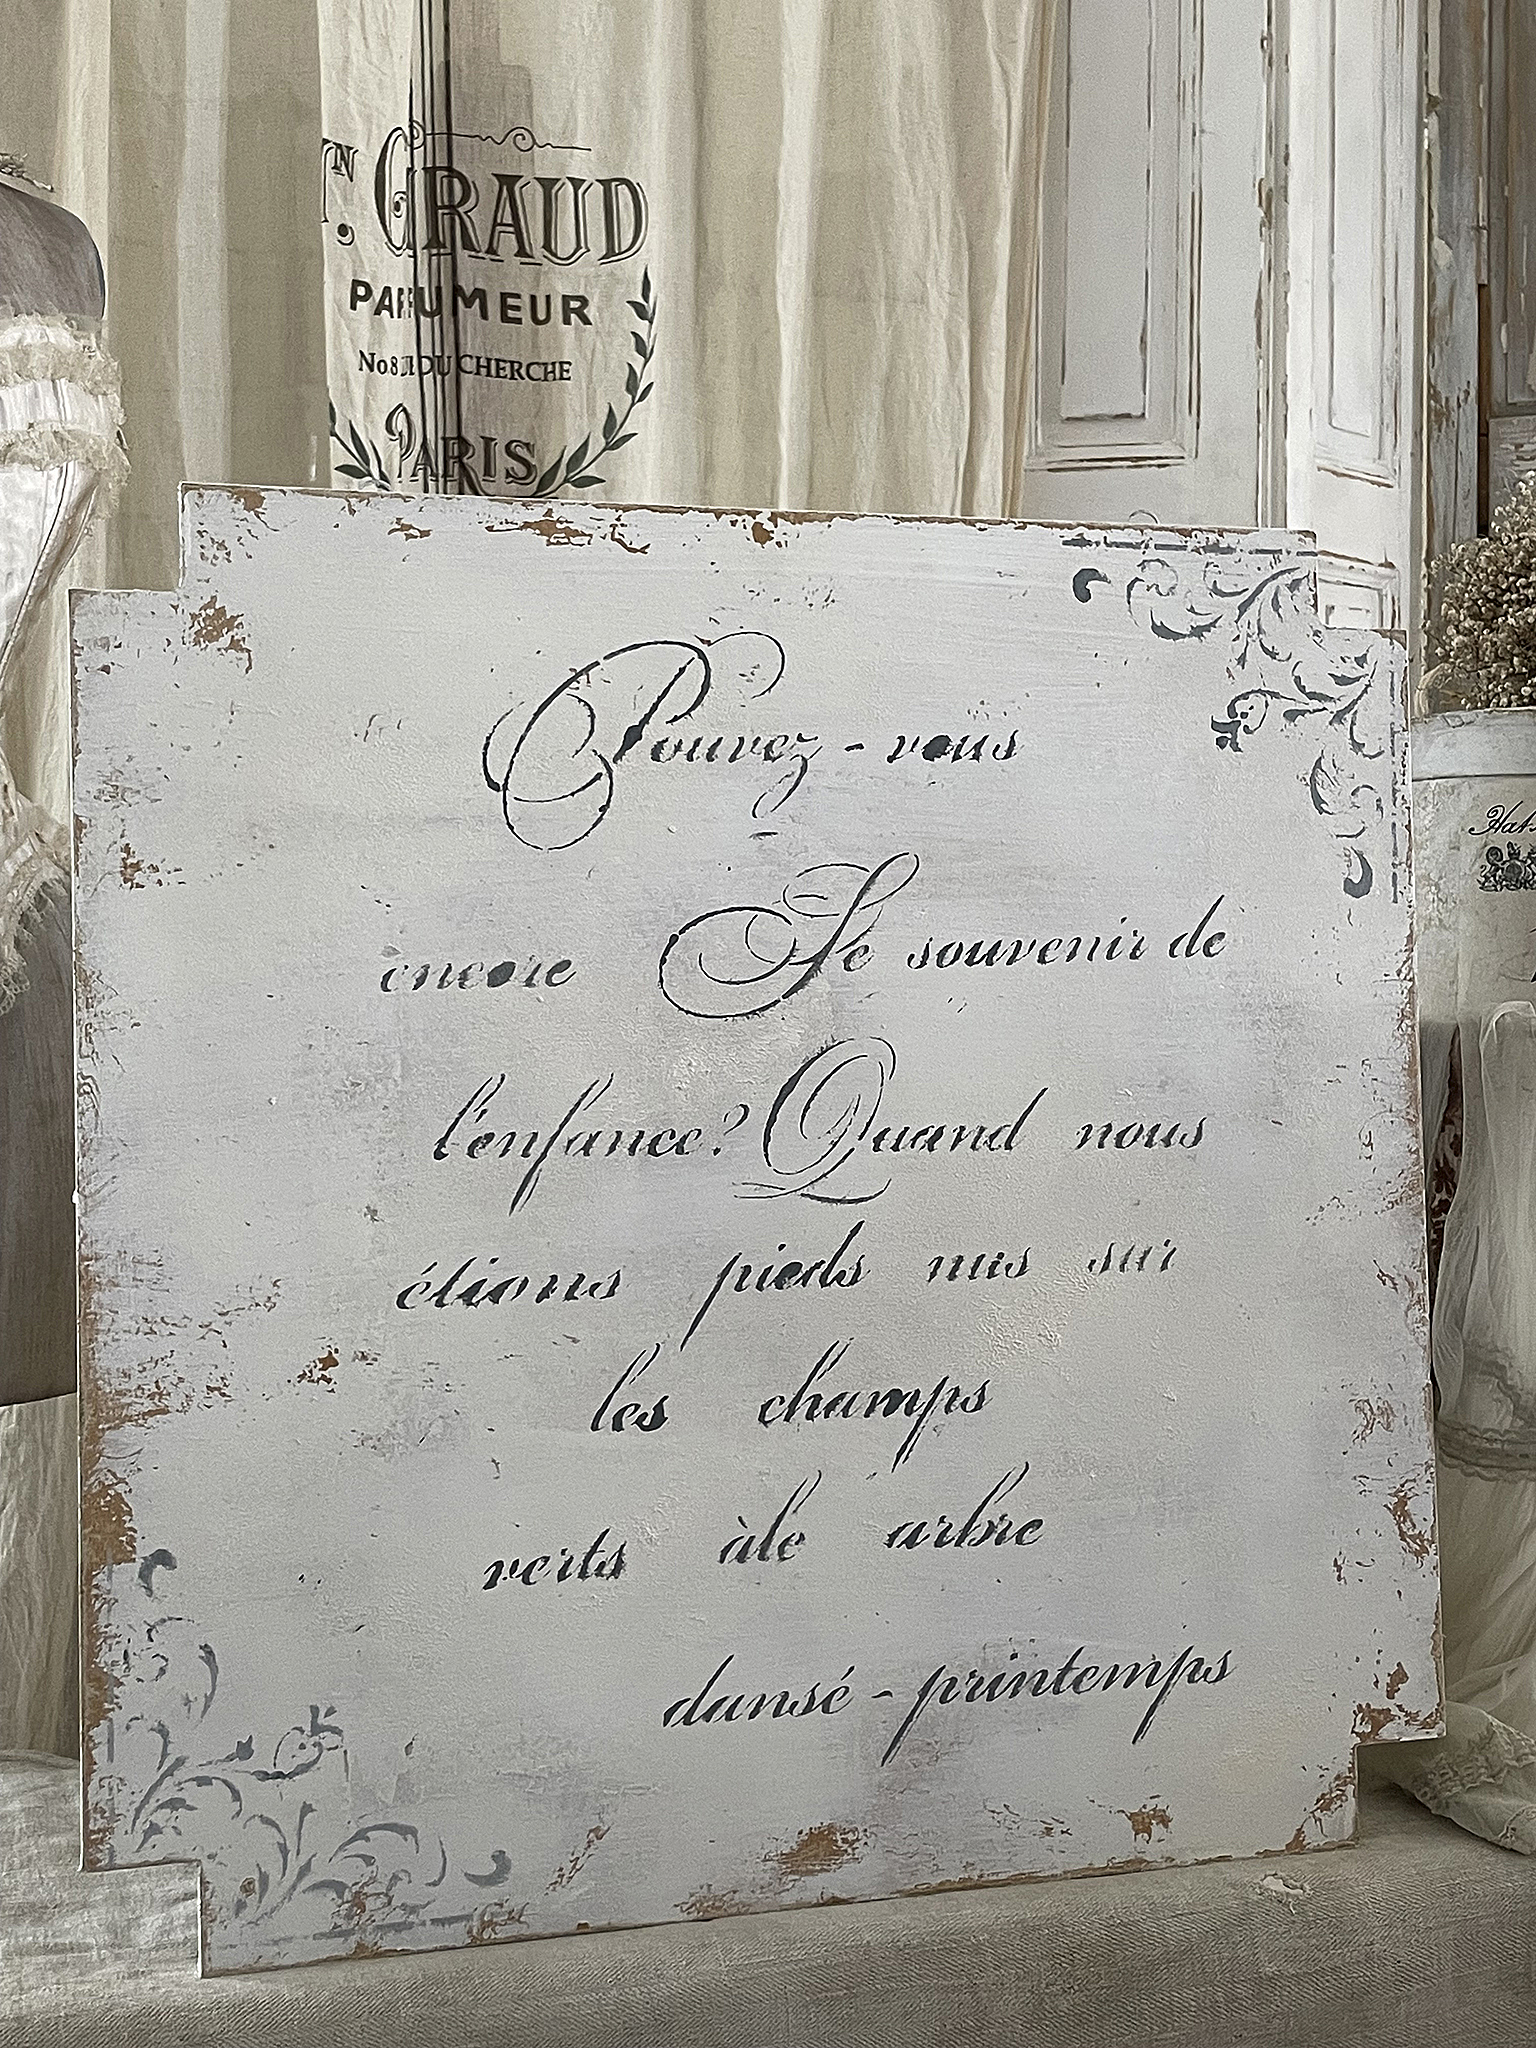 GIRAUD
PARFUMEUR
CHERCHE
PARIS
Pouvez-vous
encore Se souvenir de
l'enfance? Quand nous
étions pieds nus sur
les champs
verts àle arbre
dansé-printemps